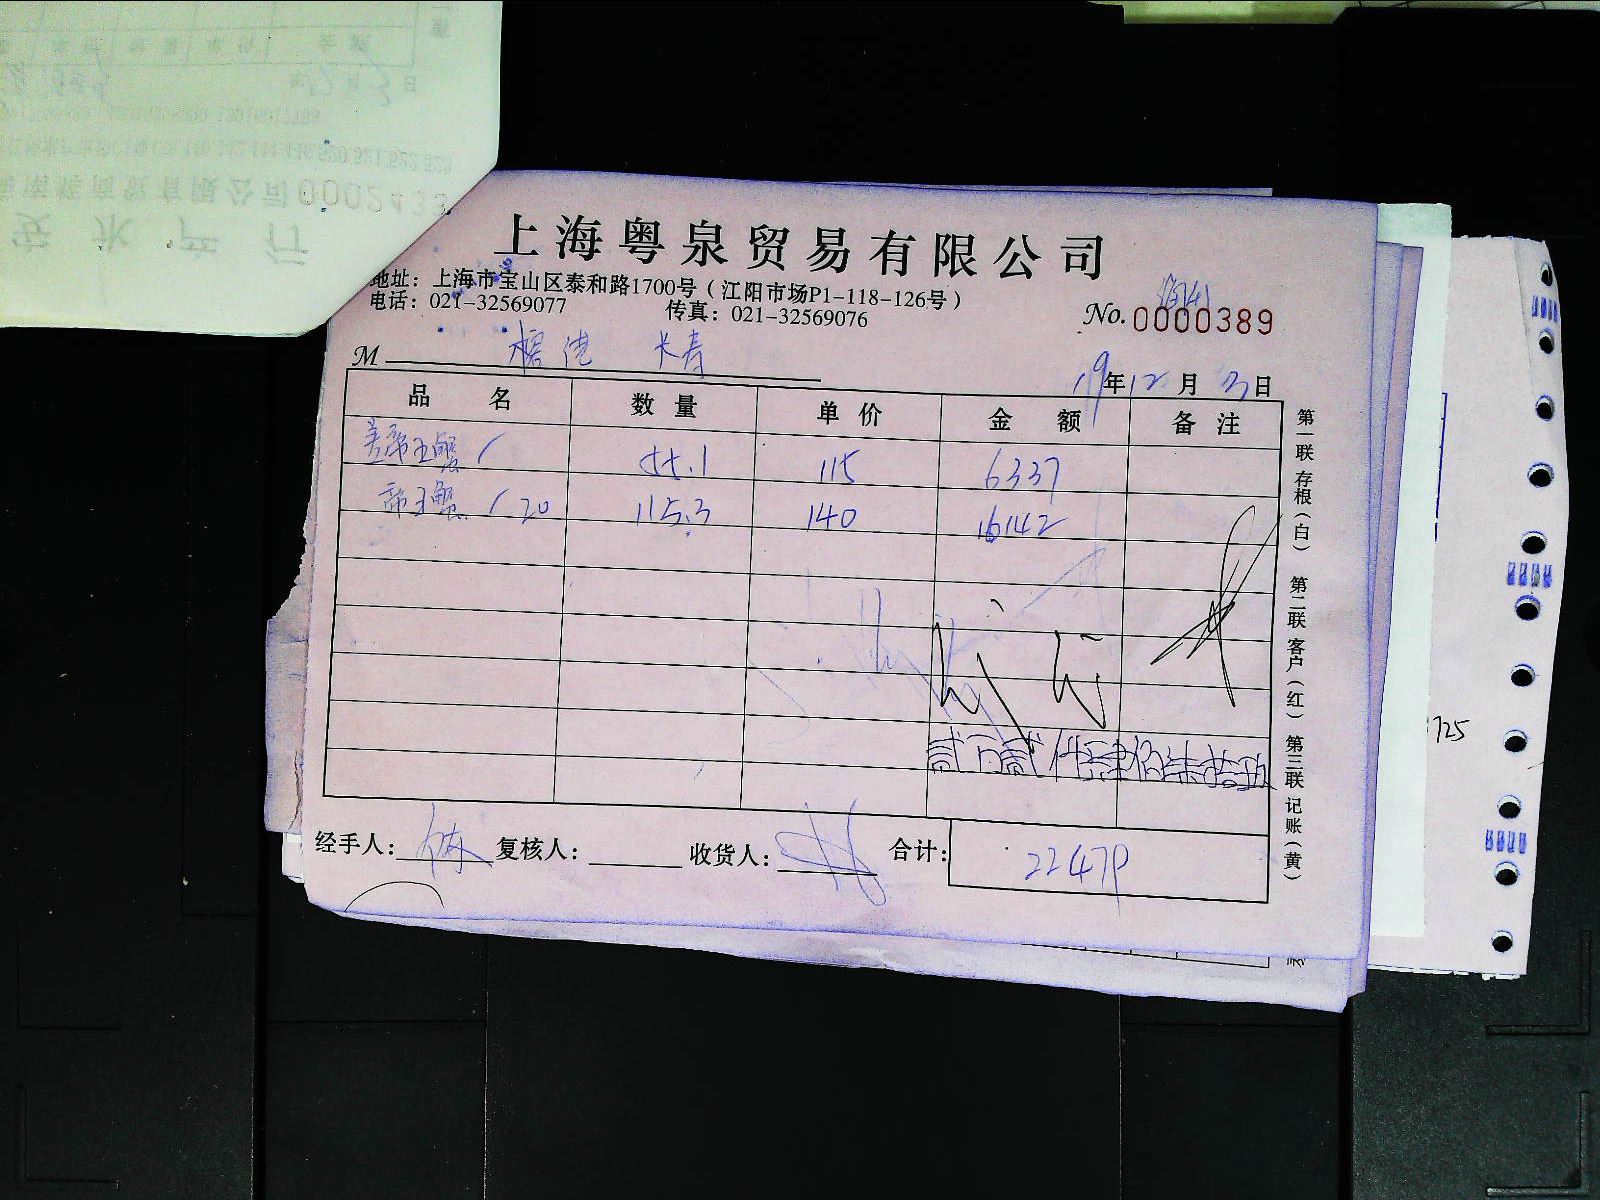 上海粤泉贸易有限公司
地址：上海市宝山区泰和路1700号（江阳市场P1-118-126号）
电话：021-32569077 传真：021-32569076
No. 0000389
M 长寿
19年12月3日
品名 数量 单价 金额 备注
帝王蟹 55.1 115 6337
帝王蟹 20 115.3 140 16142
贰万贰仟肆佰柒拾玖
经手人： 复核人： 收货人： 合计： 22479
第一联 存根（白） 第二联 客户（红） 第三联 记账（黄）
725
0002433